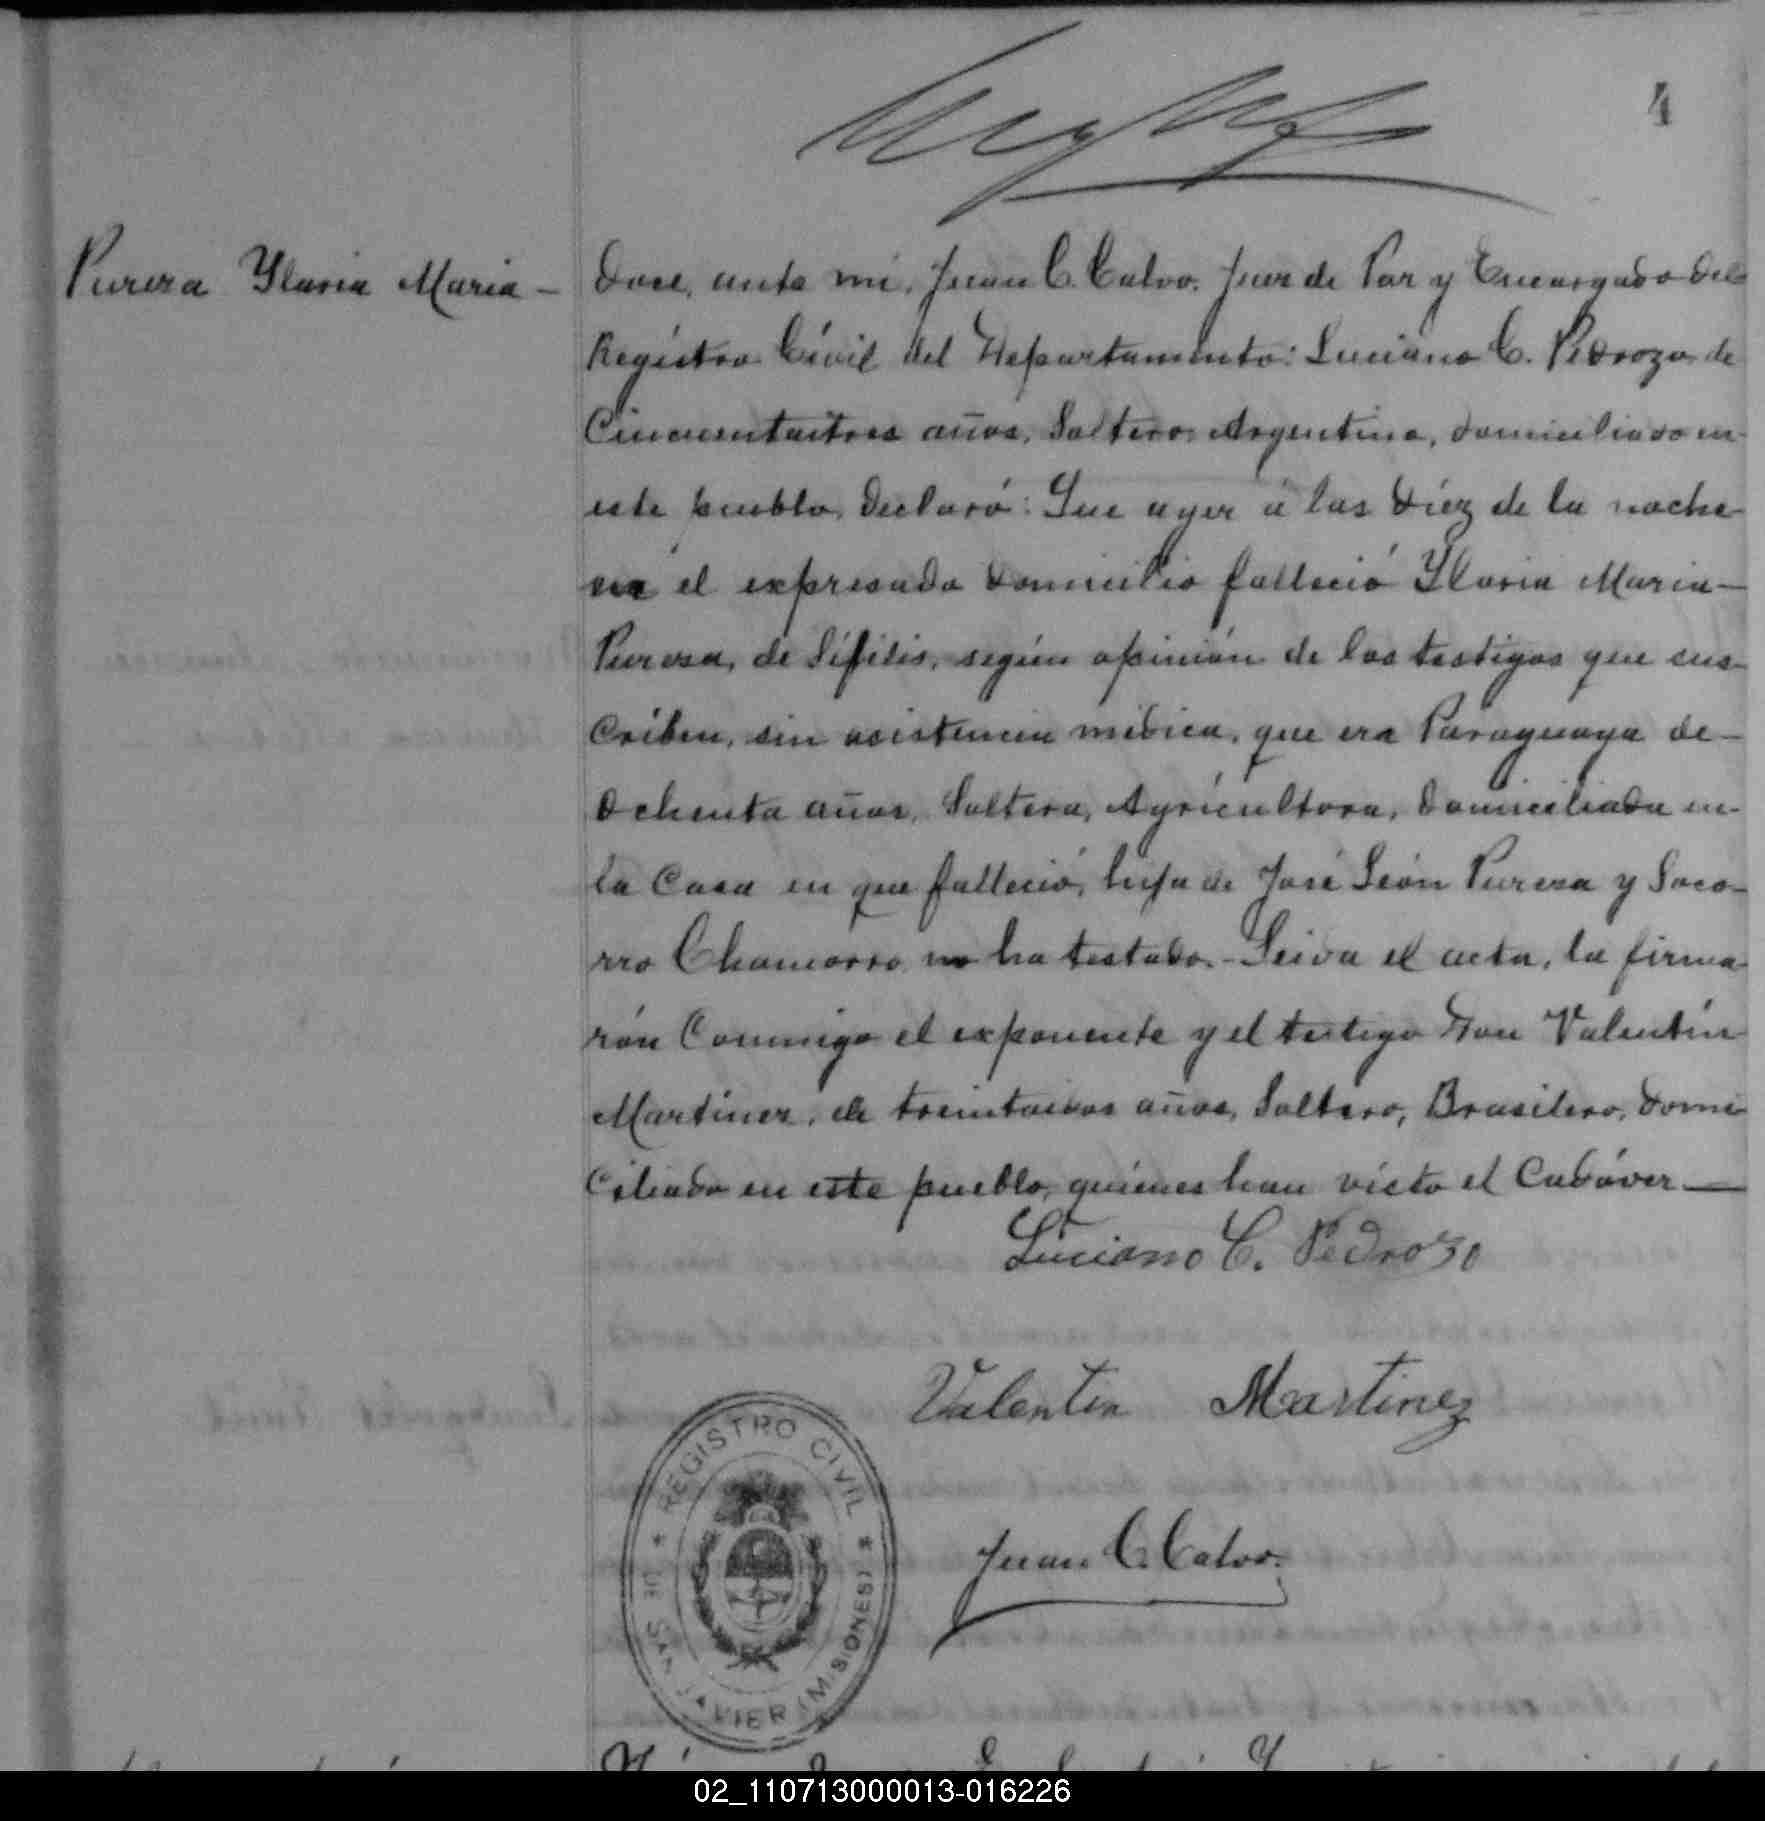 4
Purera Ylaria Maria —
Doce, ante mi, Juan C. Calvo. Juez de Paz y Encargado del
Registro Civil del Departamento: Luciano C. Pedrozo de
Cincuentaitres años, Soltero, Argentino, domiciliado en
este pueblo, Declaró: Que ayer á las Diez de la noche
en el expresado domicilio falleció Ylaria Maria —
Purera, de Sífilis, según opinión de los testigos que sus-
criben, sin asistencia médica, que era Paraguaya de —
Ochenta años, Soltera, Agricultora, Domiciliada en
la Casa en que falleció, hija de José León Purera y Soco-
rro Chamorro, no ha testado. - Leida el acta, la firma-
rón Conmigo el exponente y el testigo Don Valentín
Martinez, de treintaidos años, Soltero, Brasilero, Domi-
Ciliado en este pueblo, quiénes han visto el Cadáver —
Luciano C. Pedrozo
Valentin Martinez
Juan C. Calvo.
REGISTRO CIVIL
* DE SAN JAVIER (MISIONES) *
02_110713000013-016226